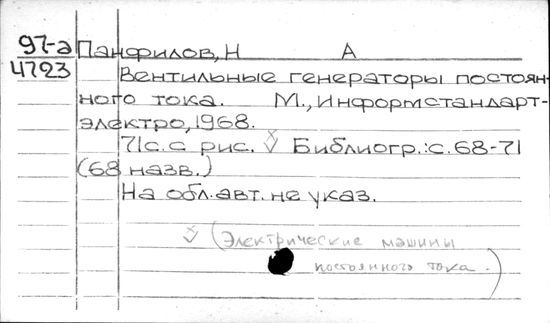 97-а Панфилов, Н А
4723
Вентильные генераторы постоян-
ного тока. М., Информстандарт-
электро, 1968.
71с. с рис. Библиогр.: с. 68-71
(68 назв.)
На обл. авт. не указ.
(Электрические машины
постоянного тока.)